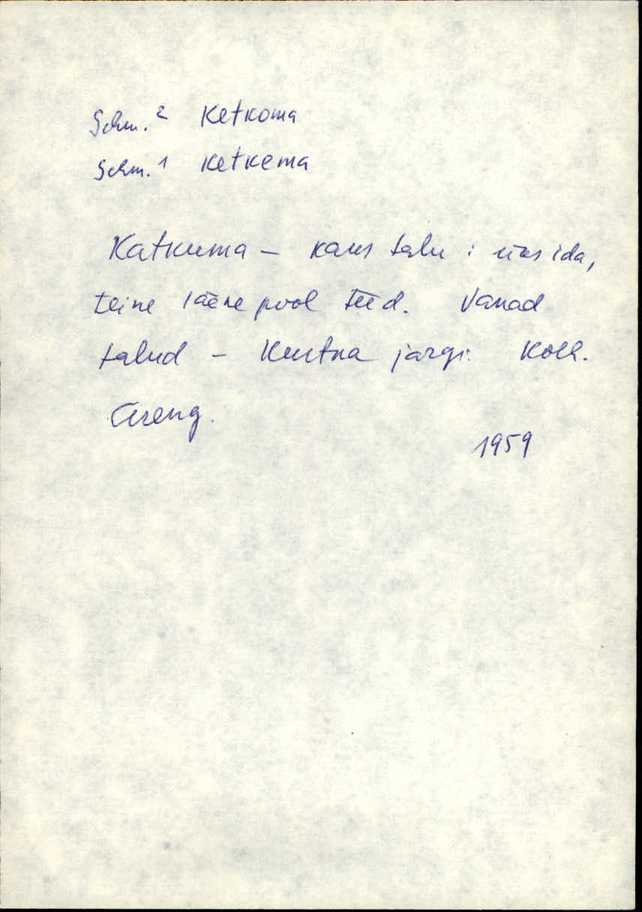 Schm.² Ketkoma
Schm.¹ Ketkema
Katkuma – kaks talu : üks ida,
teine lääne pool teed. Vanad
talud – Kurtna järgi. Kolk.
Areng.
1959